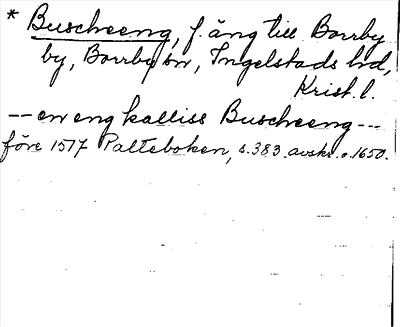 * Buscheeng, f. äng till Borrby
by, Borrby sn, Ingelstads hd,
Krist. l.
-- en eng kalliss Buscheeng ---
före 1517 Palteboken, s. 383. avskr. o. 1650.